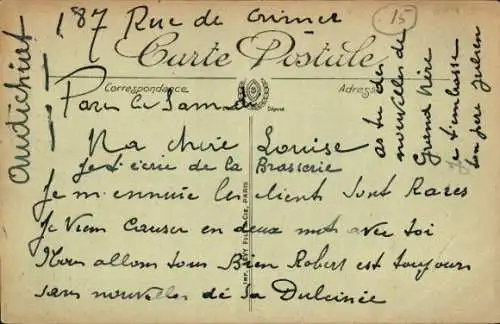 187 Rue de Crimée
15
Carte Postale
Correspondance
Adresse
Paris le Samedi
Ma chère Louise
Je t'écris de la Brasserie
Je m'ennuie les clients sont Rares
Je viens causer en deux mots avec toi
Nous allons tous Bien Robert est toujours
sans nouvelles de sa Dulcinée
as tu des
nouvelles de
Grand Mère
je t'embrasse
ton père Julien
IMP. LEVY FILS & CIE, PARIS